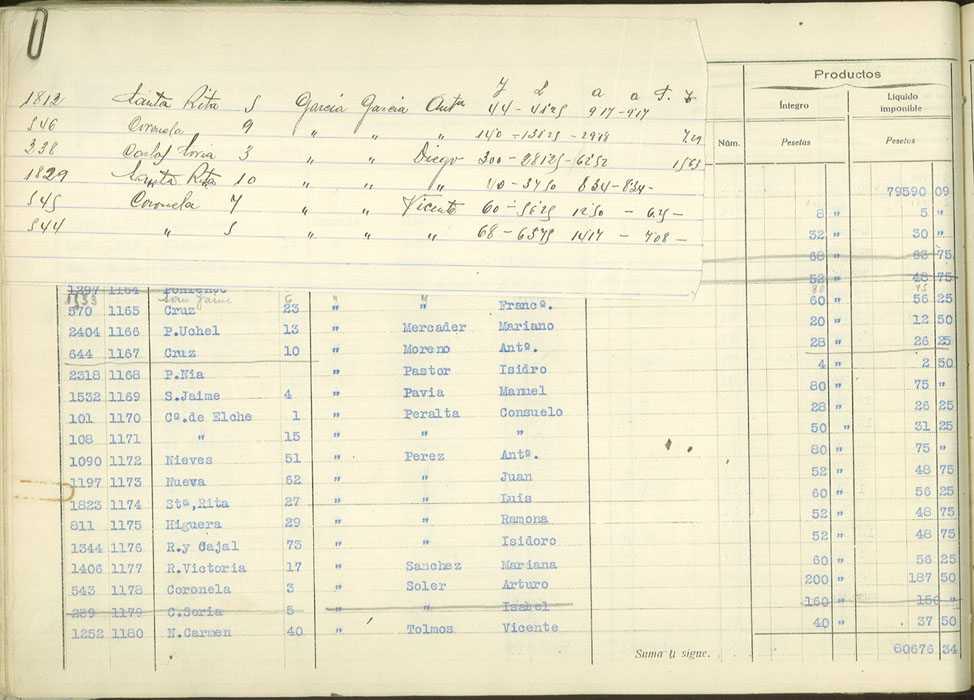 Productos
Íntegro Líquido imponible
Núm. Pesetas Pesetas
1812 Santa Rita 5 Garcia Garcia Anta 44-4125 917-917
546 Coronela 9 " " " 140-13125-2918 729
338 Carlos Soria 3 " " Diego 300-28125-6252 1563
1829 Santa Rita 10 " " " 40-3750 834-834-
545 Coronela 7 " " Vicente 60-5625 1250-625-
544 " 5 " " " 68-6375 1417-708-
79590 09
8 " 5 "
32 " 30 "
68 " 63 75
52 " 48 75
1297 1164 Poniente
1533 San Jaime 6 " "
570 1165 Cruz 23 " " Francº. 60 " 56 25
2404 1166 P.Uchel 13 " Mercader Mariano 20 " 12 50
644 1167 Cruz 10 " Moreno Antº. 28 " 26 25
2318 1168 P.Nia " Pastor Isidro 4 " 2 50
1532 1169 S.Jaime 4 " Pavia Manuel 80 " 75 "
101 1170 Cª.de Elche 1 " Peralta Consuelo 28 " 26 25
108 1171 " 15 " " " 50 " 31 25
1090 1172 Nieves 51 " Perez Antº. 80 " 75 "
1197 1173 Nueva 62 " " Juan 52 " 48 75
1823 1174 Stª,Rita 27 " " Luis 60 " 56 25
811 1175 Higuera 29 " " Ramona 52 " 48 75
1344 1176 R.y Cajal 73 " " Isidoro 52 " 48 75
1406 1177 R.Victoria 17 " Sanchez Mariana 60 " 56 25
543 1178 Coronela 3 " Soler Arturo 200 " 187 50
259 1179 C.Soria 5 " " Isabel 160 " 150 "
1252 1180 N.Carmen 40 " Tolmos Vicente 40 " 37 50
Suma y sigue. 80676 34